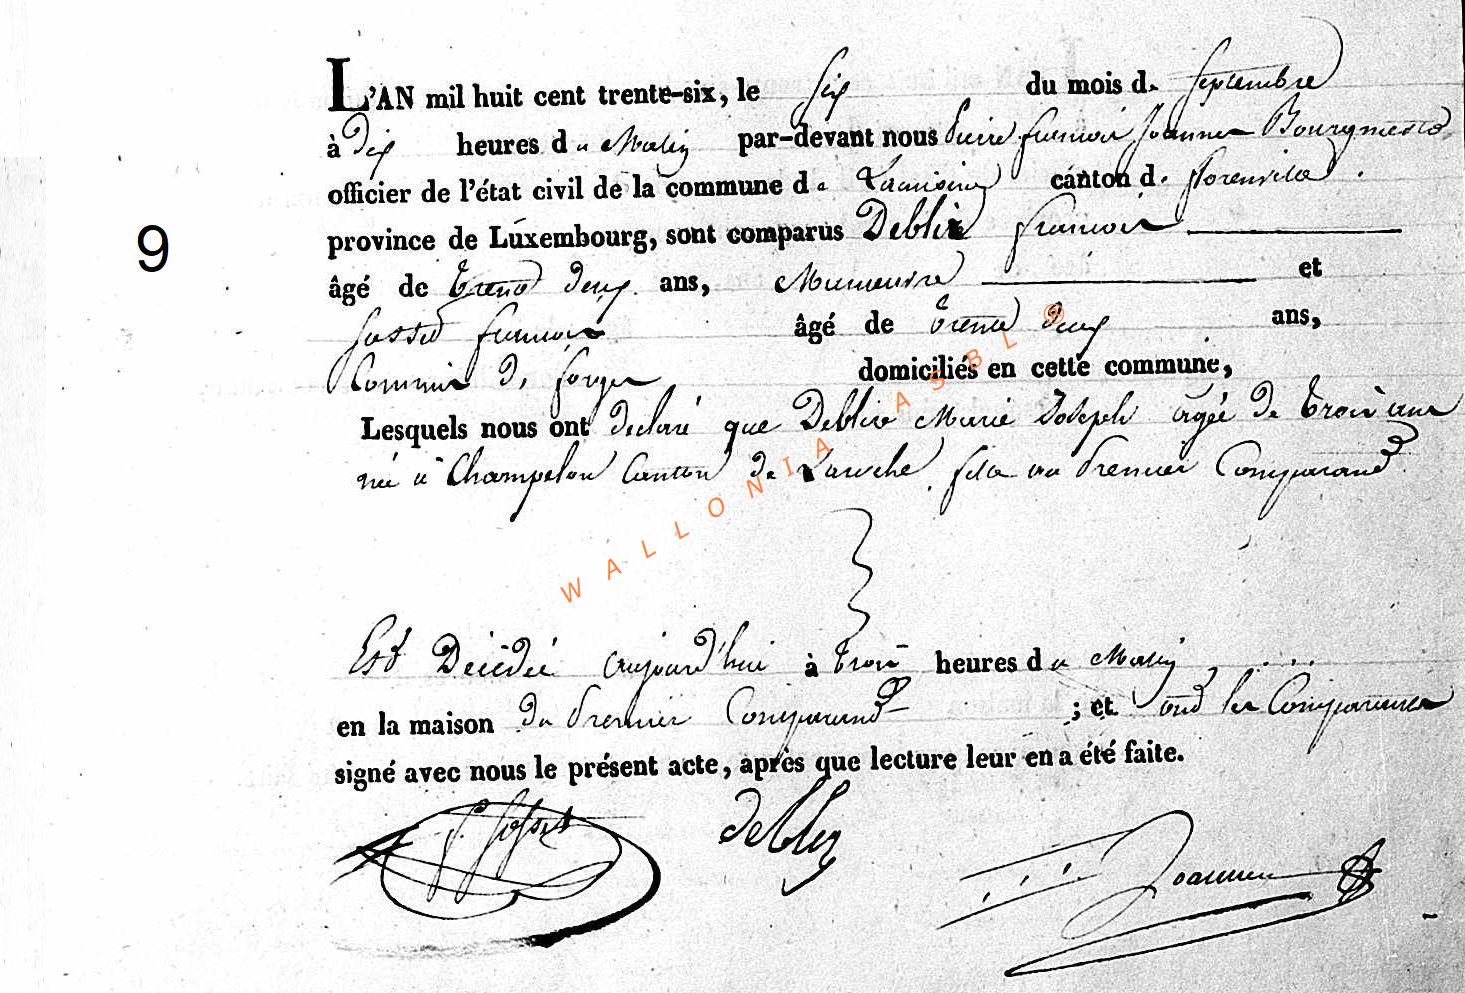 L'AN mil huit cent trente-six, le six du mois de Septembre
à Dix heures du Matin par-devant nous Pierre françois Joannes Bourgmestre
officier de l'état civil de la commune de canton de florenville
province de Luxembourg, sont comparus Deblire françois
9
âgé de trente Deux ans, Manœuvre et
françois âgé de trente Deux ans,
Commis De forges domiciliés en cette commune,
Lesquels nous ont déclaré que Deblire Marie Joseph agée de trois ans
née à Champlon Canton de Laroche, fille du Premier Comparand
WALLONIA ASBL ©
Est Décédée aujourd'hui à trois heures du Matin
en la maison du Premier Comparand ; et ont les Comparans
signé avec nous le présent acte, après que lecture leur en a été faite.
Joannes